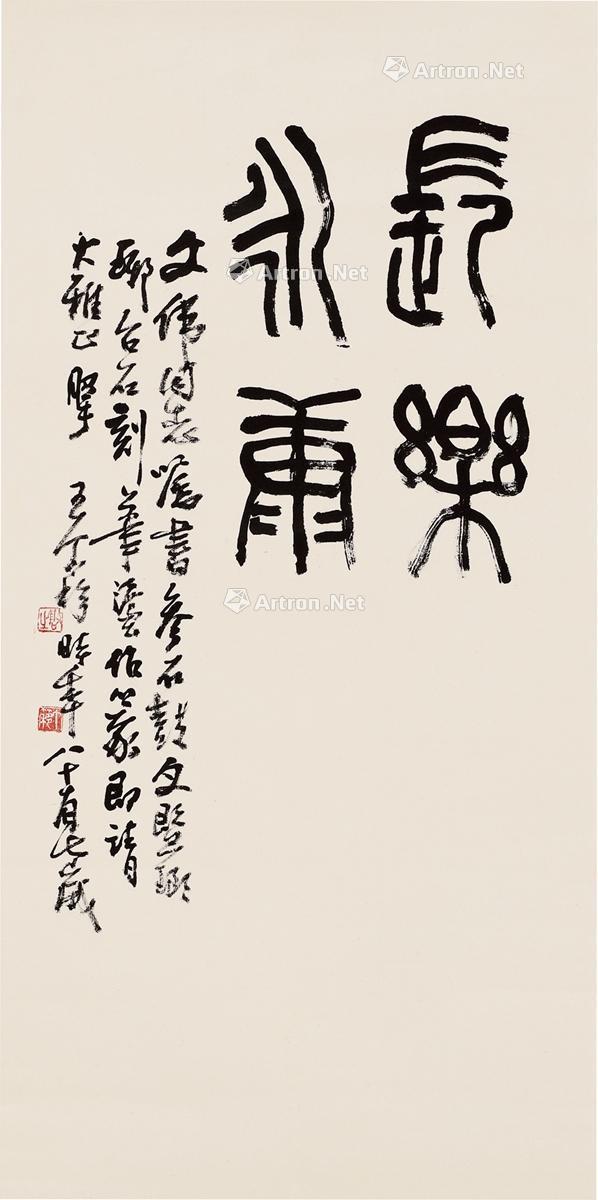 長樂
永康
文偉同志嘱書參石鼓文暨瑯
琊台石刻筆法作篆即請
大雅正擘
王个簃時年八十有七歲
Artron.Net
Artron.Net
Artron.Net